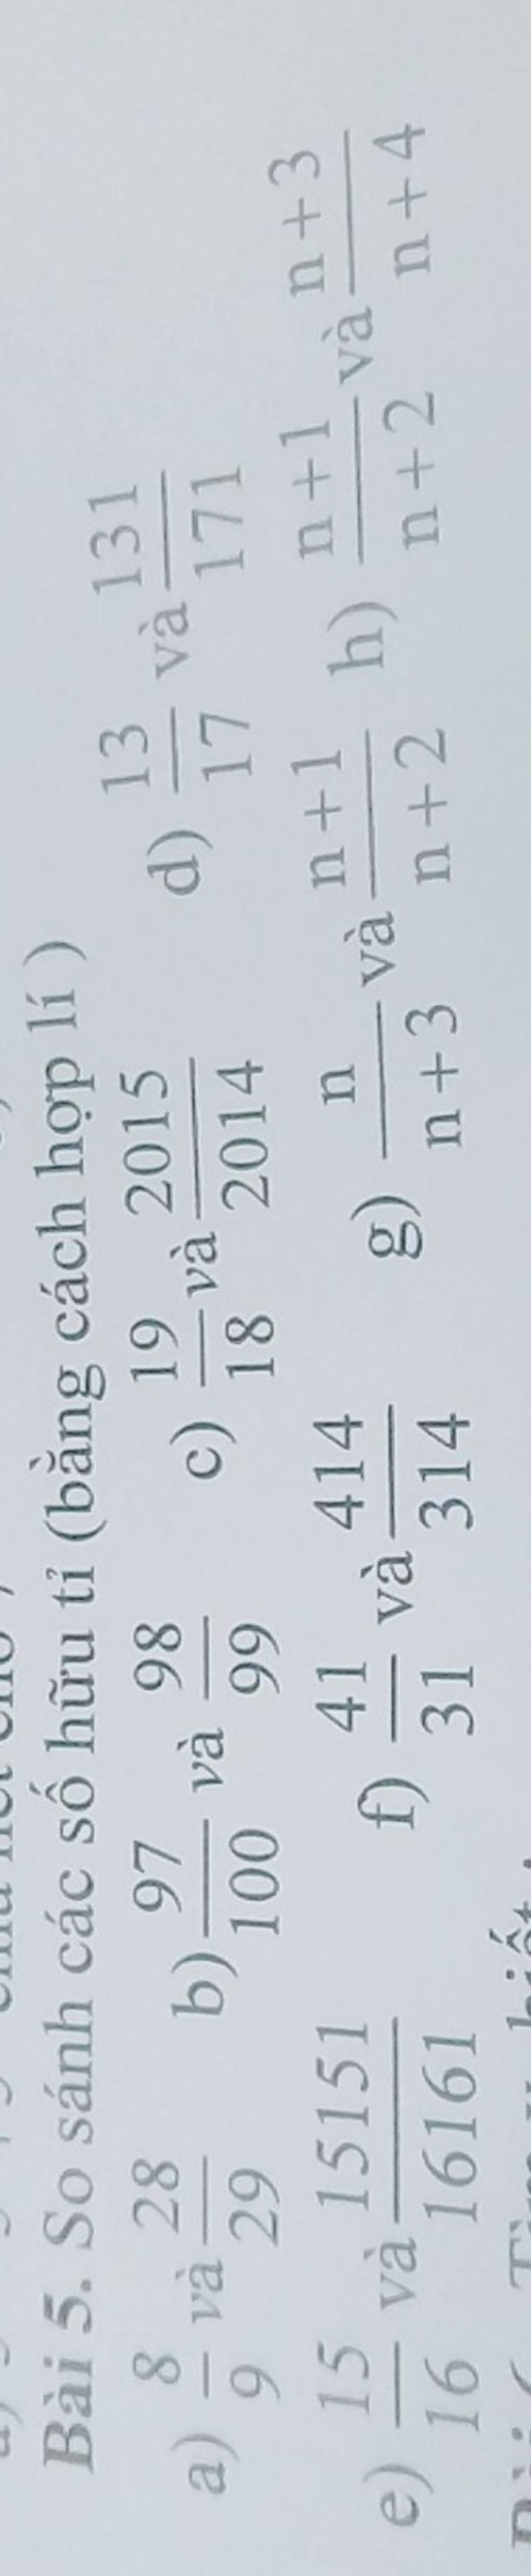 Bài 5. So sánh các số hữu tỉ (bằng cách hợp lí )
a) 8/9 và 28/29 b) 97/100 và 98/99 c) 19/18 và 2015/2014 d) 13/17 và 131/171
e) 15/16 và 15151/16161 f) 41/31 và 414/314 g) n/n+3 và n+1/n+2 h) n+1/n+2 và n+3/n+4